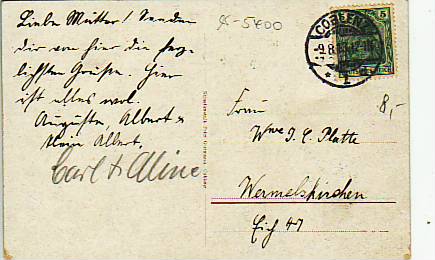 Liebe Mutter! Senden
dir von hier die herz-
lichsten Grüße. Hier
ist alles wol.
Auguste, Albert &
klein Albert.
Carl & Mine
5400
COBLENZ
5
8,-
Frau
Wwe J. C. Platte
Wermelskirchen
Eich 47